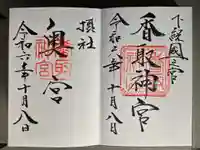 下総国一之宮
香取神宮
令和六年十月八日
摂社
奥宮
令和六年十月八日